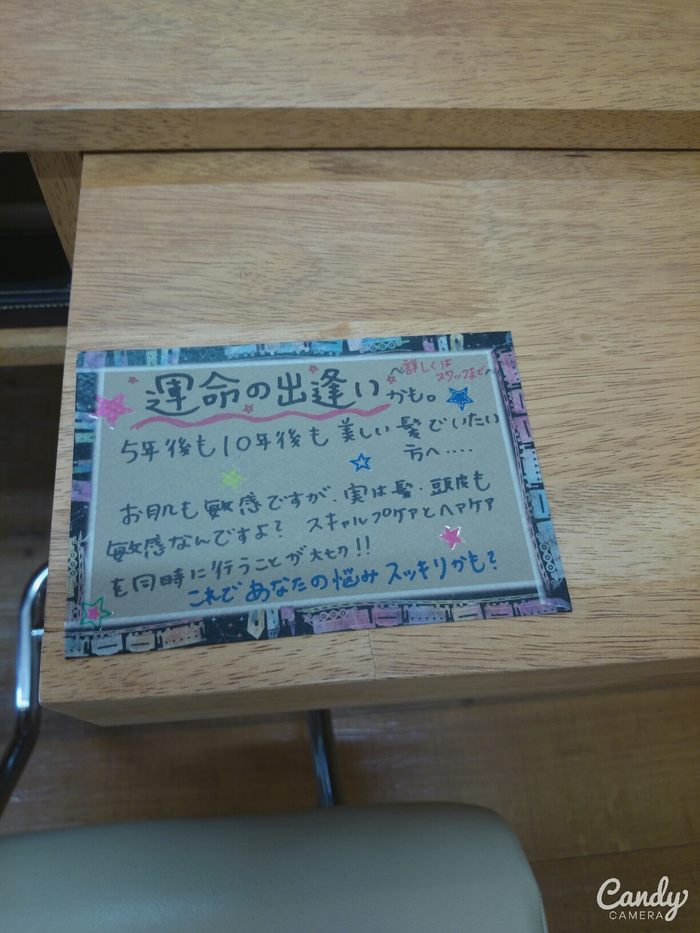 運命の出逢いかも。
詳しくは
スタッフまで
5年後も10年後も美しい髪でいたい
方へ‥‥
お肌も敏感ですが、実は髪・頭皮も
敏感なんですよ? スキャルプケアとヘアケア
を同時に行うことが大切!!
これであなたの悩みスッキリかも?
Candy
CAMERA